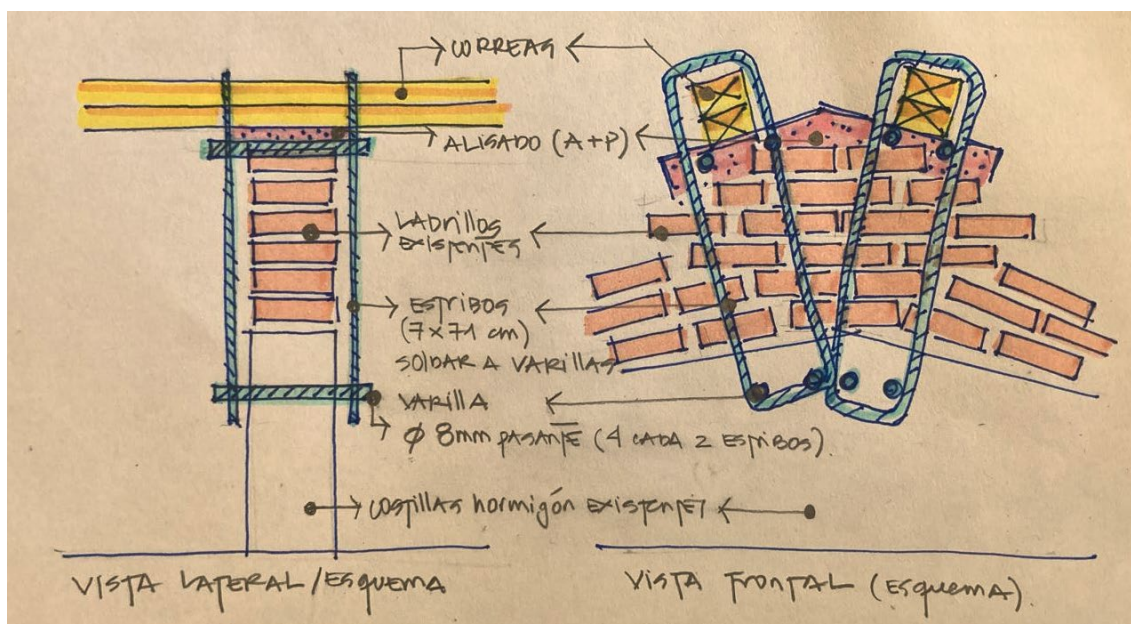 CORREAS
ALISADO (A+P)
LADRILLOS
EXISTENTES
ESTRIBOS
(7x71 cm)
SOLDAR A VARILLAS
VARILLA
Ø 8mm PASANTE (4 CADA 2 ESTRIBOS).
COSTILLAS hormigón EXISTENTES
VISTA LATERAL/ESQUEMA
VISTA FRONTAL (ESQUEMA).